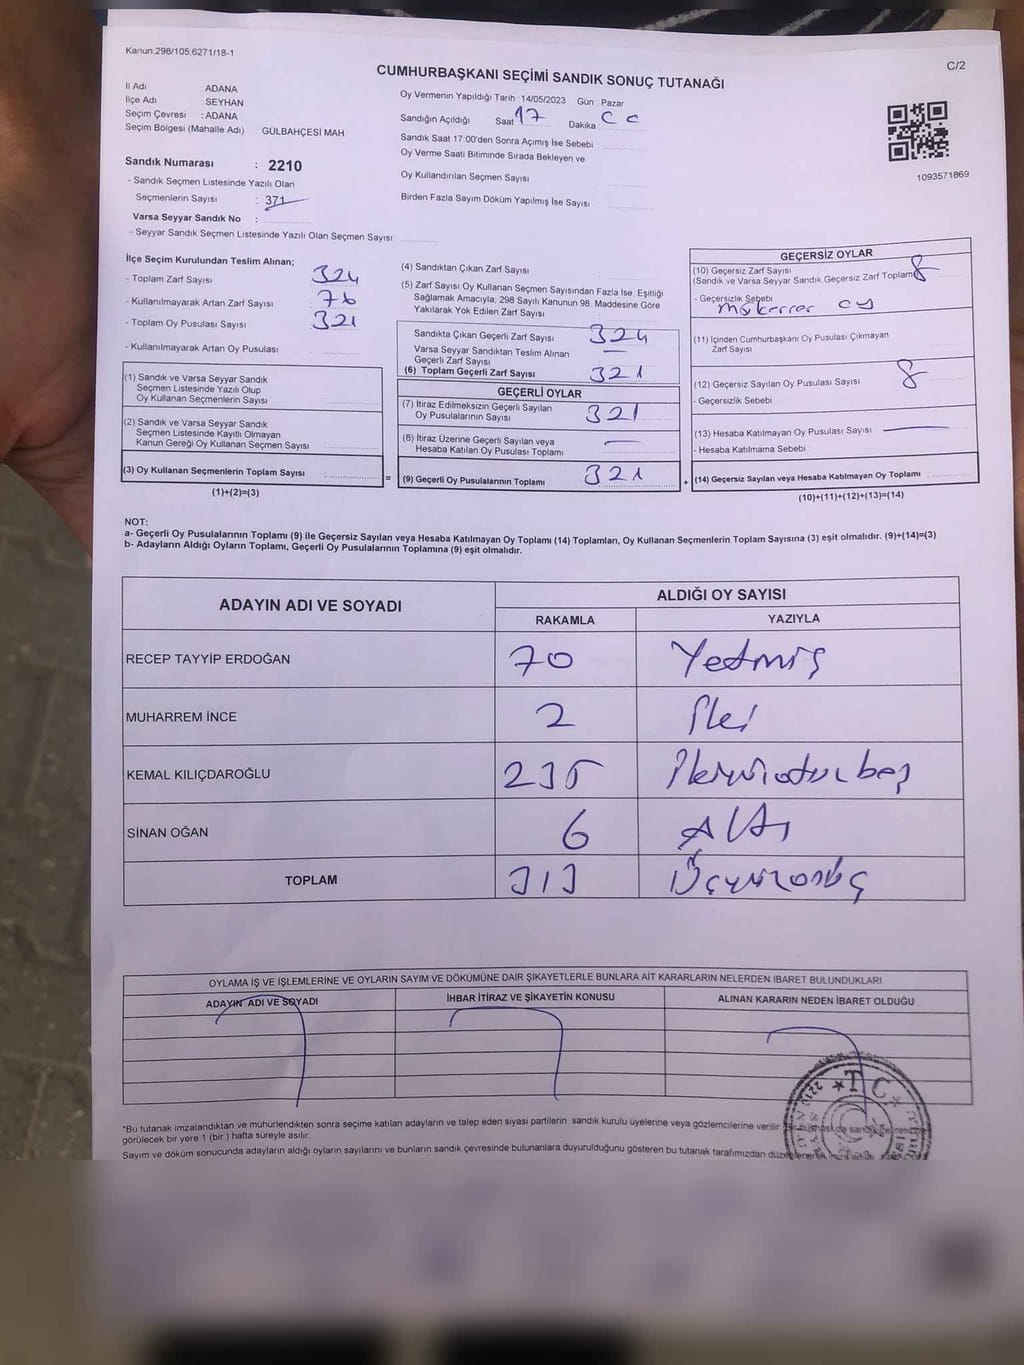 Kanun.298/105.6271/18-1
C/2
CUMHURBAŞKANI SEÇİMİ SANDIK SONUÇ TUTANAĞI
İl Adı ADANA
İlçe Adı : SEYHAN
Seçim Çevresi : ADANA
Seçim Bölgesi (Mahalle Adı) GÜLBAHÇESİ MAH
Sandık Numarası : 2210
- Sandık Seçmen Listesinde Yazılı Olan
Seçmenlerin Sayısı : 371
Varsa Seyyar Sandık No :
- Seyyar Sandık Seçmen Listesinde Yazılı Olan Seçmen Sayısı:
Oy Vermenin Yapıldığı Tarih : 14/05/2023 Gün Pazar
Sandığın Açıldığı Saat 17 Dakika
Sandık Saat 17:00'den Sonra Açımış İse Sebebi
Oy Verme Saati Bitiminde Sırada Bekleyen ve
Oy Kullandırılan Seçmen Sayısı
Birden Fazla Sayım Döküm Yapılmış İse Sayısı
1093571869
İlçe Seçim Kurulundan Teslim Alınan;
- Toplam Zarf Sayısı 324
- Kullanılmayarak Artan Zarf Sayısı 76
- Toplam Oy Pusulası Sayısı 321
- Kullanılmayarak Artan Oy Pusulası
(1) Sandık ve Varsa Seyyar Sandık
Seçmen Listesinde Yazılı Olup
Oy Kullanan Seçmenlerin Sayısı :
(2) Sandık ve Varsa Seyyar Sandık
Seçmen Listesinde Kayıtlı Olmayan
Kanun Gereği Oy Kullanan Seçmen Sayısı :
(3) Oy Kullanan Seçmenlerin Toplam Sayısı :
(1)+(2)=(3)
(4) Sandıktan Çıkan Zarf Sayısı
(5) Zarf Sayısı Oy Kullanan Seçmen Sayısından Fazla İse, Eşitliği
Sağlamak Amacıyla, 298 Sayılı Kanunun 98. Maddesine Göre
Yakılarak Yok Edilen Zarf Sayısı
Sandıkta Çıkan Geçerli Zarf Sayısı 324
Varsa Seyyar Sandıktan Teslim Alınan
Geçerli Zarf Sayısı —
(6) Toplam Geçerli Zarf Sayısı 321
GEÇERLİ OYLAR
(7) İtiraz Edilmeksizin Geçerli Sayılan
Oy Pusulalarının Sayısı 321
(8) İtiraz Üzerine Geçerli Sayılan veya
Hesaba Katılan Oy Pusulası Toplamı —
= (9) Geçerli Oy Pusulalarının Toplamı 321
GEÇERSİZ OYLAR
(10) Geçersiz Zarf Sayısı
(Sandık ve Varsa Seyyar Sandık Geçersiz Zarf Toplamı) 8
- Geçersizlik Sebebi
mükerrer oy
(11) İçinden Cumhurbaşkanı Oy Pusulası Çıkmayan
Zarf Sayısı
(12) Geçersiz Sayılan Oy Pusulası Sayısı 8
- Geçersizlik Sebebi
(13) Hesaba Katılmayan Oy Pusulası Sayısı —
- Hesaba Katılmama Sebebi
+ (14) Geçersiz Sayılan veya Hesaba Katılmayan Oy Toplamı
(10)+(11)+(12)+(13)=(14)
NOT:
a- Geçerli Oy Pusulalarının Toplamı (9) ile Geçersiz Sayılan veya Hesaba Katılmayan Oy Toplamı (14) Toplamları, Oy Kullanan Seçmenlerin Toplam Sayısına (3) eşit olmalıdır. (9)+(14)=(3)
b- Adayların Aldığı Oyların Toplamı, Geçerli Oy Pusulalarının Toplamına (9) eşit olmalıdır.
ADAYIN ADI VE SOYADI
ALDIĞI OY SAYISI
RAKAMLA YAZIYLA
RECEP TAYYİP ERDOĞAN 70 Yetmiş
MUHARREM İNCE 2 İki
KEMAL KILIÇDAROĞLU 235 İkiyüzotuzbeş
SİNAN OĞAN 6 Altı
TOPLAM 313 Üçyüzonüç
OYLAMA İŞ VE İŞLEMLERİNE VE OYLARIN SAYIM VE DÖKÜMÜNE DAİR ŞİKAYETLERLE BUNLARA AİT KARARLARIN NELERDEN İBARET BULUNDUKLARI
ADAYIN ADI VE SOYADI İHBAR İTİRAZ VE ŞİKAYETİN KONUSU ALINAN KARARIN NEDEN İBARET OLDUĞU
T.C.
*Bu tutanak imzalandıktan ve mühürlendikten sonra seçime katılan adayların ve talep eden siyasi partilerin sandık kurulu üyelerine veya gözlemcilerine verilir
görülecek bir yere 1 (bir ) hafta süreyle asılır.
Sayım ve döküm sonucunda adayların aldığı oyların sayılarını ve bunların sandık çevresinde bulunanlara duyurulduğunu gösteren bu tutanak tarafımızdan